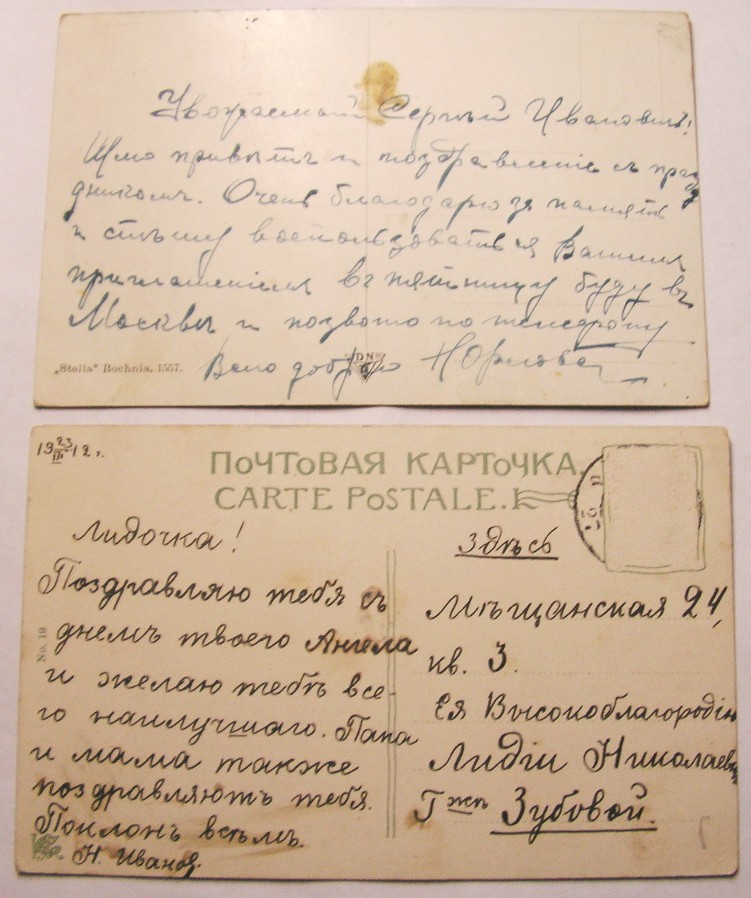 Уважаемый Сергѣй Ивановичъ!
Шлю привѣтъ и поздравленіе съ праз
дникомъ. Очень благодарю за память
и спѣшу воспользоваться Вашимъ
приглашеніемъ въ пятницу буду въ
Москвѣ и позвоню по телефону
Всего добраго Н Орлова
„Stella" Bochnia. 1557.
DN
19 23/III 12 г.
ПОЧТОВАЯ КАРТОЧКА.
CARTE POSTALE.
Лидочка!
Поздравляю тебя съ
днемъ твоего Ангела
и желаю тебѣ все-
го наилучшаго. Папа
и мама также
поздравляютъ тебя.
Поклонъ всѣмъ.
Н. Иванов.
No. 19
Здѣсь
Мѣщанская 24,
кв. 3.
Ея Высокоблагородію
Лидіи Николаевнѣ
Гжѣ Зубовой.